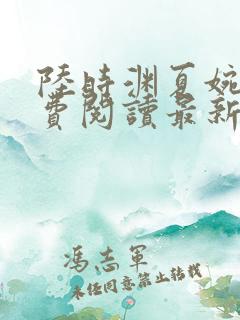 陸時渊夏婉
費閱讀最新
馮志軍
未經同意禁止转載